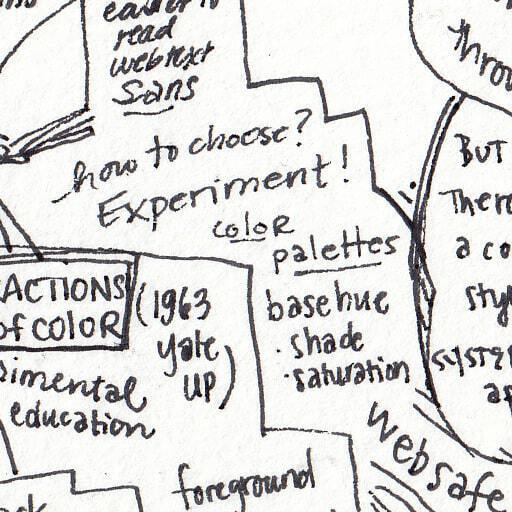 easier to
read
webtext
Sans
how to choose?
Experiment!
color
palettes
base hue
• shade
• saturation
ACTIONS
of COLOR
(1963
Yale
UP)
imental
education
foreground
Websafe
throu
BUT
There
a co
styl
SYSTE
as